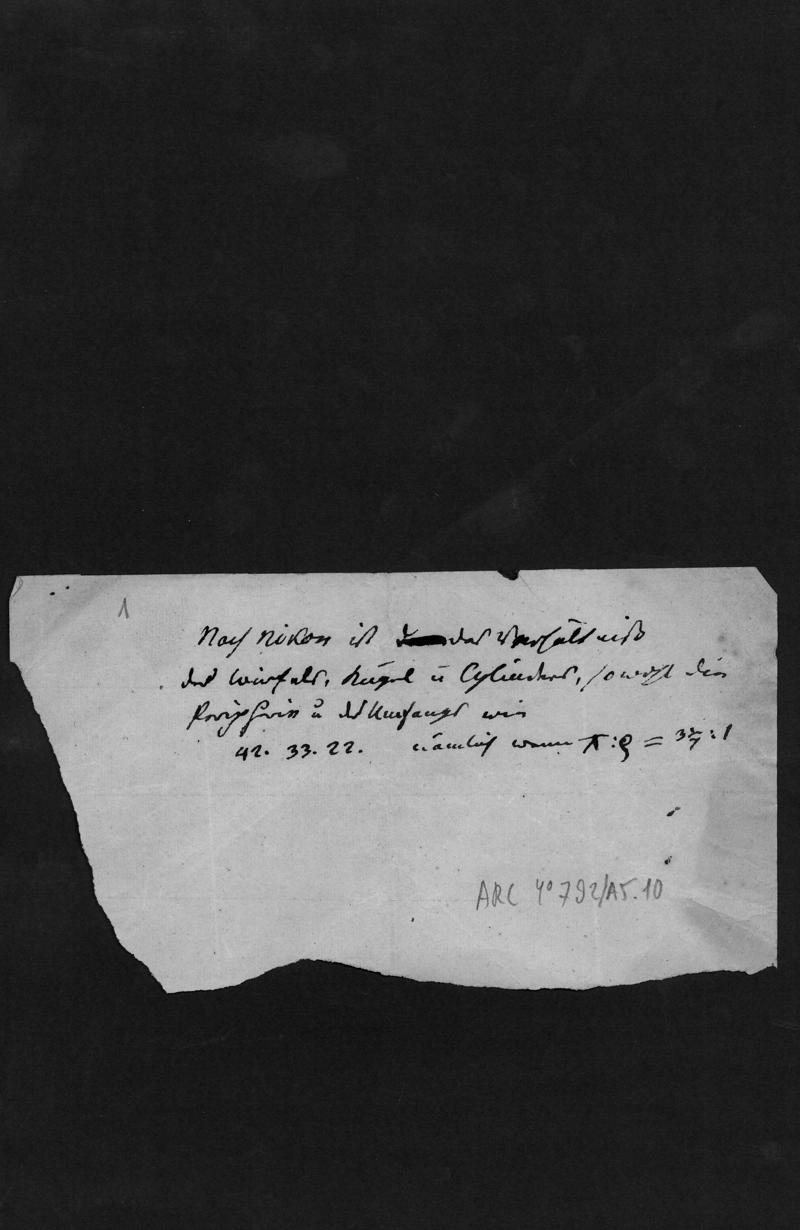 1
Nach Nikon ist das Verhältniß
des Würfels, Kugel u Cylinders, sowohl die
Peripherie u des Umfangs wie
42. 33. 22. nämlich wenn π:ϱ = 3 1/7 : 1
ARC 4° 792/A5.10